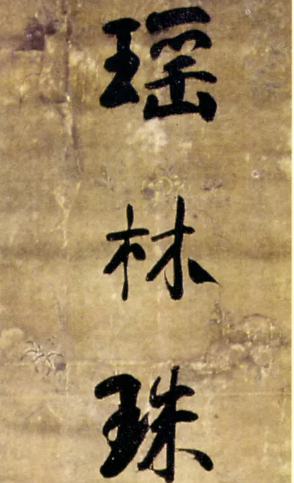 瑶林珠